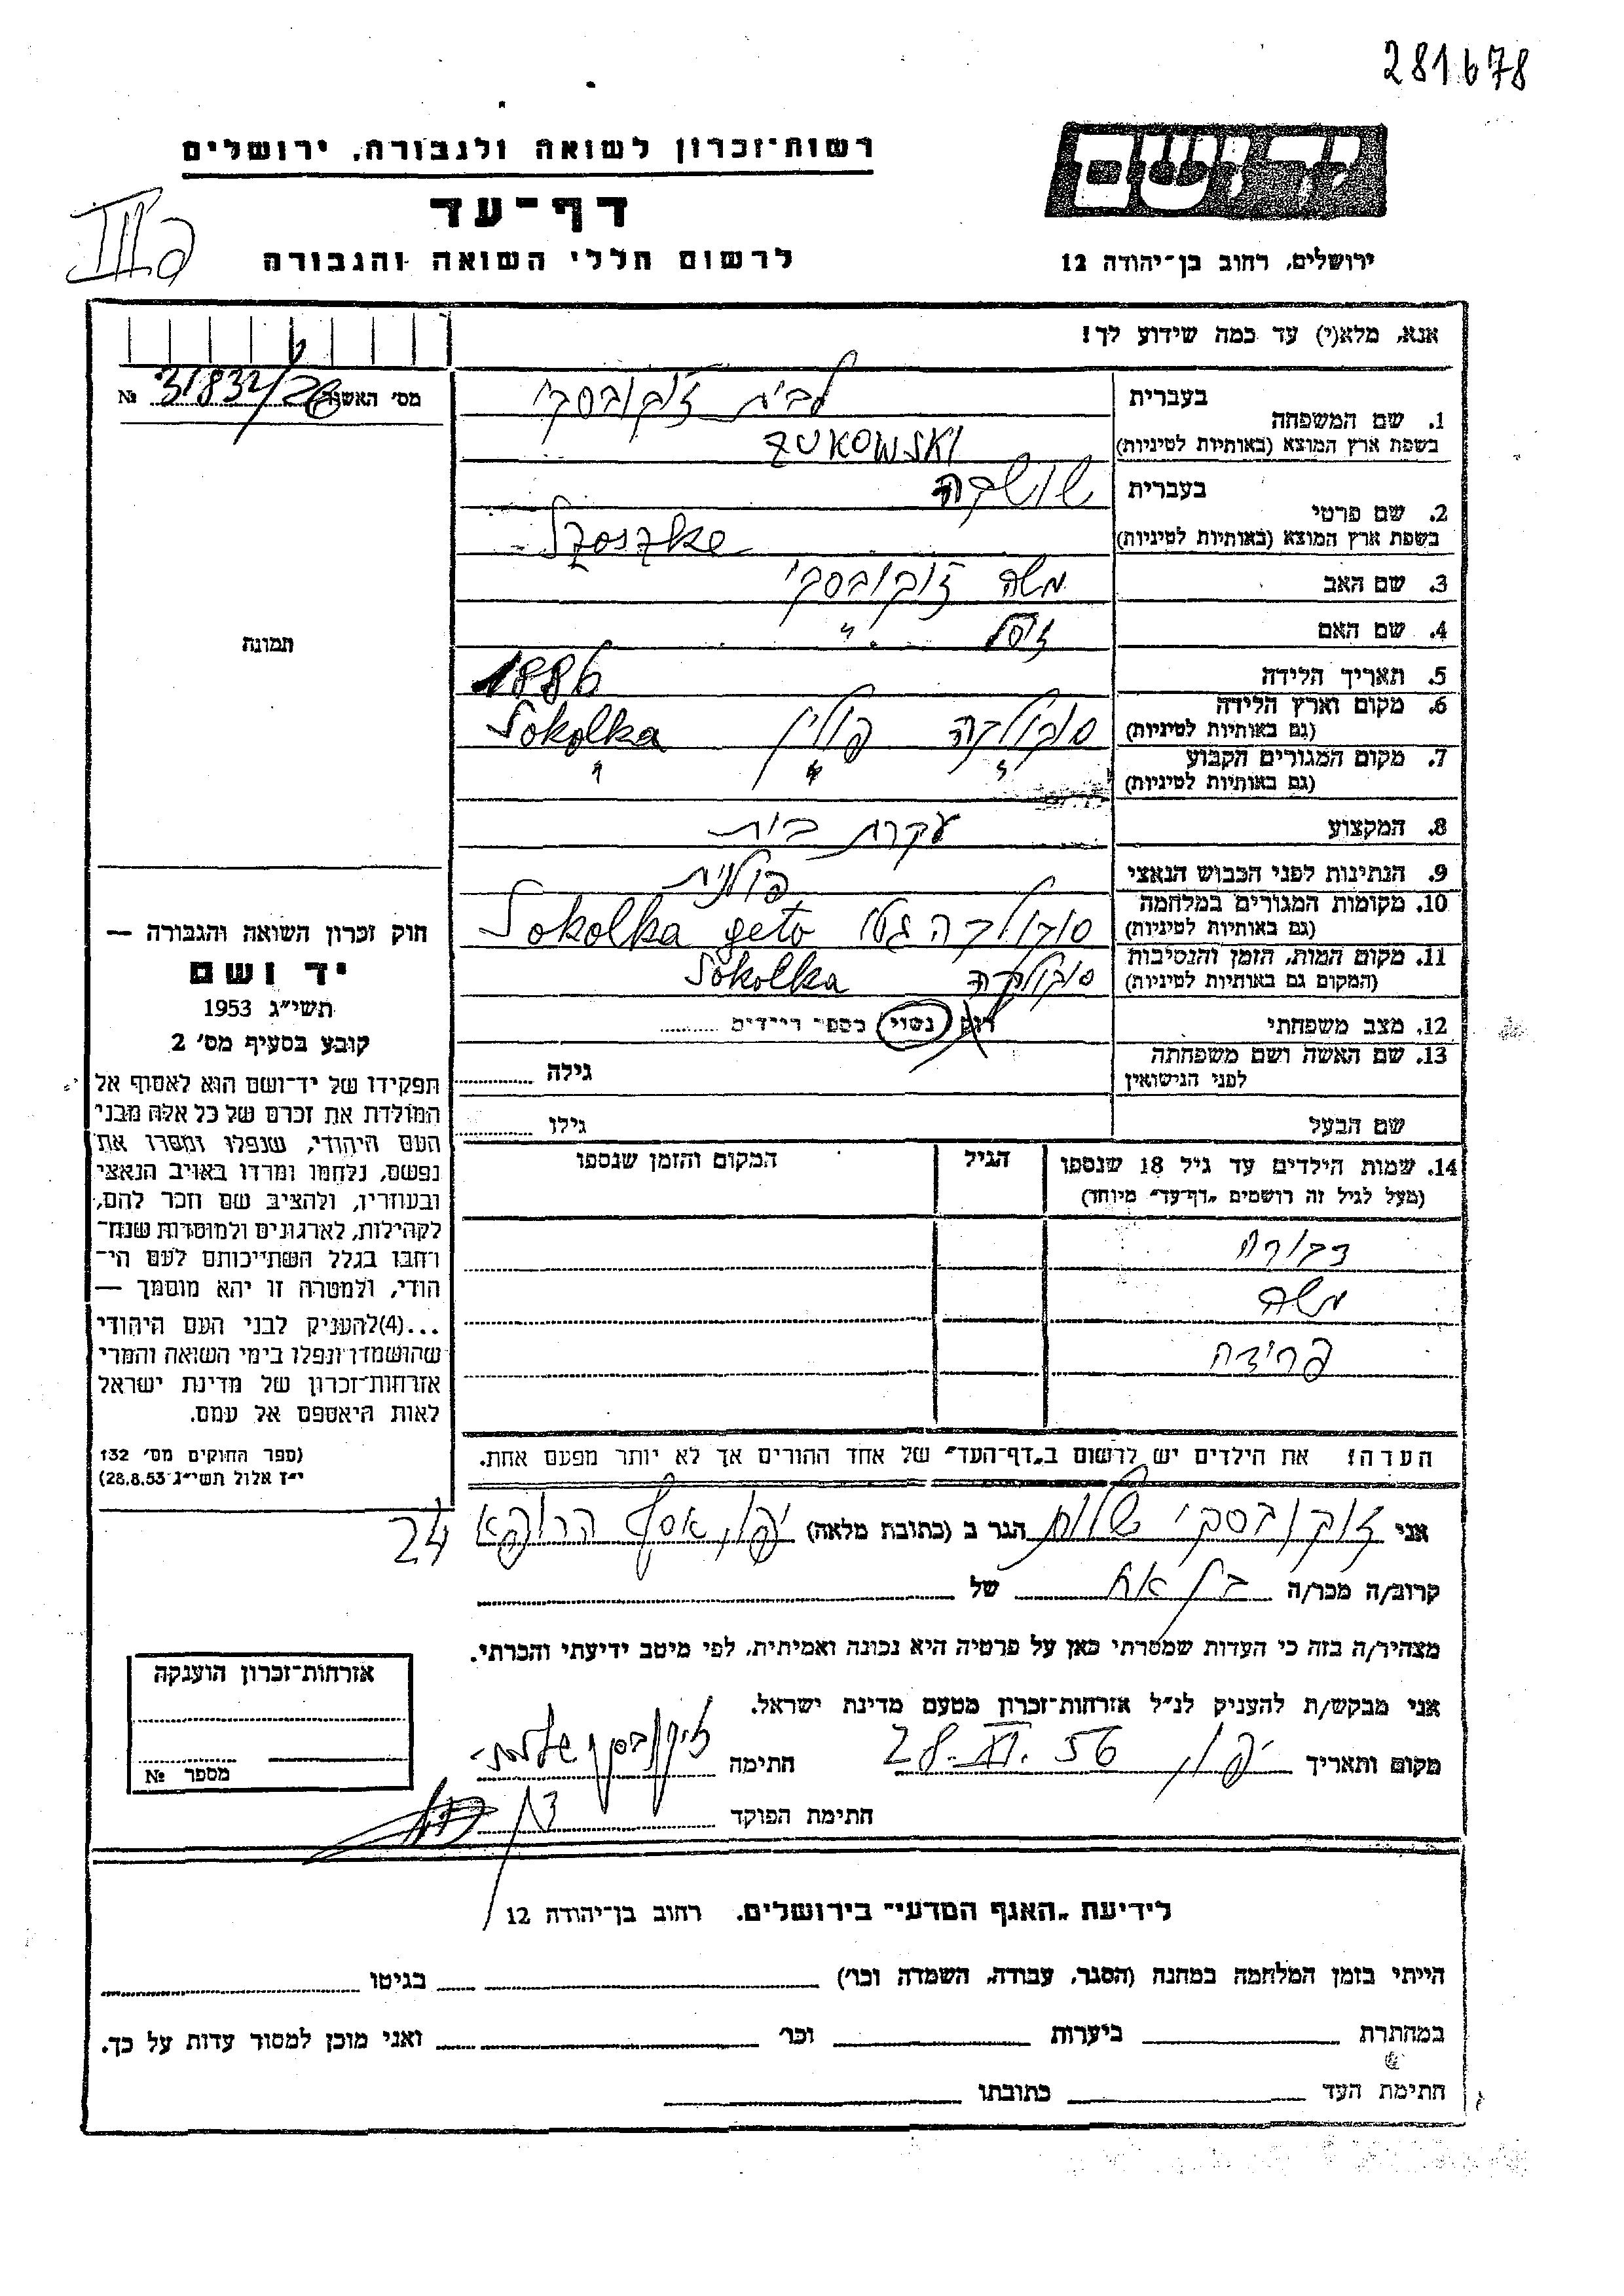 281678
יד ושם
רשות־זכרון לשואה ולגבורה, ירושלים
דף־עד
לרשום חללי השואה והגבורה
ירושלים, רחוב בן־יהודה 12
אנא, מלא(י) עד כמה שידוע לך!
מס' האשור 31832/26 №
תמונה
1. שם המשפחה
בעברית לבית ז'וקובסקי
בשפת ארץ המוצא (באותיות לטיניות) ZUKOWSKI
2. שם פרטי
בעברית שושקה
בשפת ארץ המוצא (באותיות לטיניות) Szoszke
3. שם האב משה ז'וקובסקי
4. שם האם "
5. תאריך הלידה 1886
6. מקום וארץ הלידה (גם באותיות לטיניות) סוקולקה פולין Sokolka
7. מקום המגורים הקבוע (גם באותיות לטיניות) " " "
8. המקצוע עקרת בית
9. הנתינות לפני הכבוש הנאצי פולנית
10. מקומות המגורים במלחמה (גם באותיות לטיניות) סוקולקה גטו Sokolka geto
11. מקום המות, הזמן והנסיבות (המקום גם באותיות לטיניות) סוקולקה Sokolka
12. מצב משפחתי רוק נשוי מספר הילדים
13. שם האשה ושם משפחתה לפני הנישואין גילה
שם הבעל גילו
14. שמות הילדים עד גיל 18 שנספו (מעל לגיל זה רושמים „דף־עד״ מיוחד) הגיל המקום והזמן שנספו
דבורה
משה
פרידה
הערה! את הילדים יש לרשום ב„דף־העד״ של אחד ההורים אך לא יותר מפעם אחת.
חוק זכרון השואה והגבורה —
יד ושם
תשי״ג 1953
קובע בסעיף מס' 2
תפקידו של יד־ושם הוא לאסוף אל
המולדת את זכרם של כל אלה מבני
העם היהודי, שנפלו ומסרו את
נפשם, נלחמו ומרדו באויב הנאצי
ובעוזריו, ולהציב שם וזכר להם,
לקהילות, לארגונים ולמוסדות שנח־
רבו בגלל השתייכותם לעם הי־
הודי, ולמטרה זו יהא מוסמך —
...(4)להעניק לבני העם היהודי
שהושמדו ונפלו בימי השואה והמרי
אזרחות־זכרון של מדינת ישראל
לאות היאספם אל עמם.
(ספר החוקים מס' 132
י״ז אלול תשי״ג 28.8.53)
אני ז'וקובסקי שלמה הגר ב (כתובת מלאה) יפו, אסף הרופא 24
קרוב/ה מכר/ה בן אח של
מצהיר/ה בזה כי העדות שמסרתי כאן על פרטיה היא נכונה ואמיתית, לפי מיטב ידיעתי והכרתי.
אני מבקש/ת להעניק לנ״ל אזרחות־זכרון מטעם מדינת ישראל.
מקום ותאריך יפו, 28.XI.56 חתימה ז'וקובסקי שלמה
חתימת הפוקד
אזרחות־זכרון הוענקה
מספר №
לידיעת „האגף המדעי״ בירושלים. רחוב בן־יהודה 12
הייתי בזמן המלחמה במחנה (הסגר, עבודה, השמדה וכו') בגיטו
במחתרת ביערות וכו' ואני מוכן למסור עדות על כך.
חתימת העד כתובתו